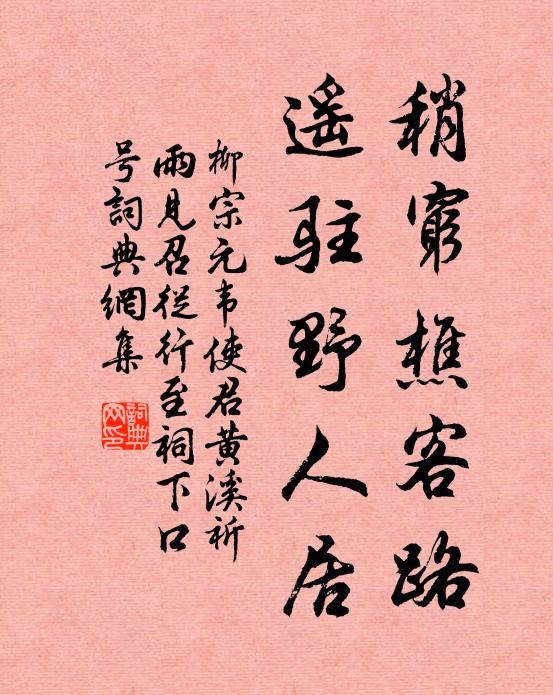 稍窮樵客路
遥駐野人居
柳宗元韦使君黄溪祈
雨見召從行至祠下口
号詞典網集
詞典
网印